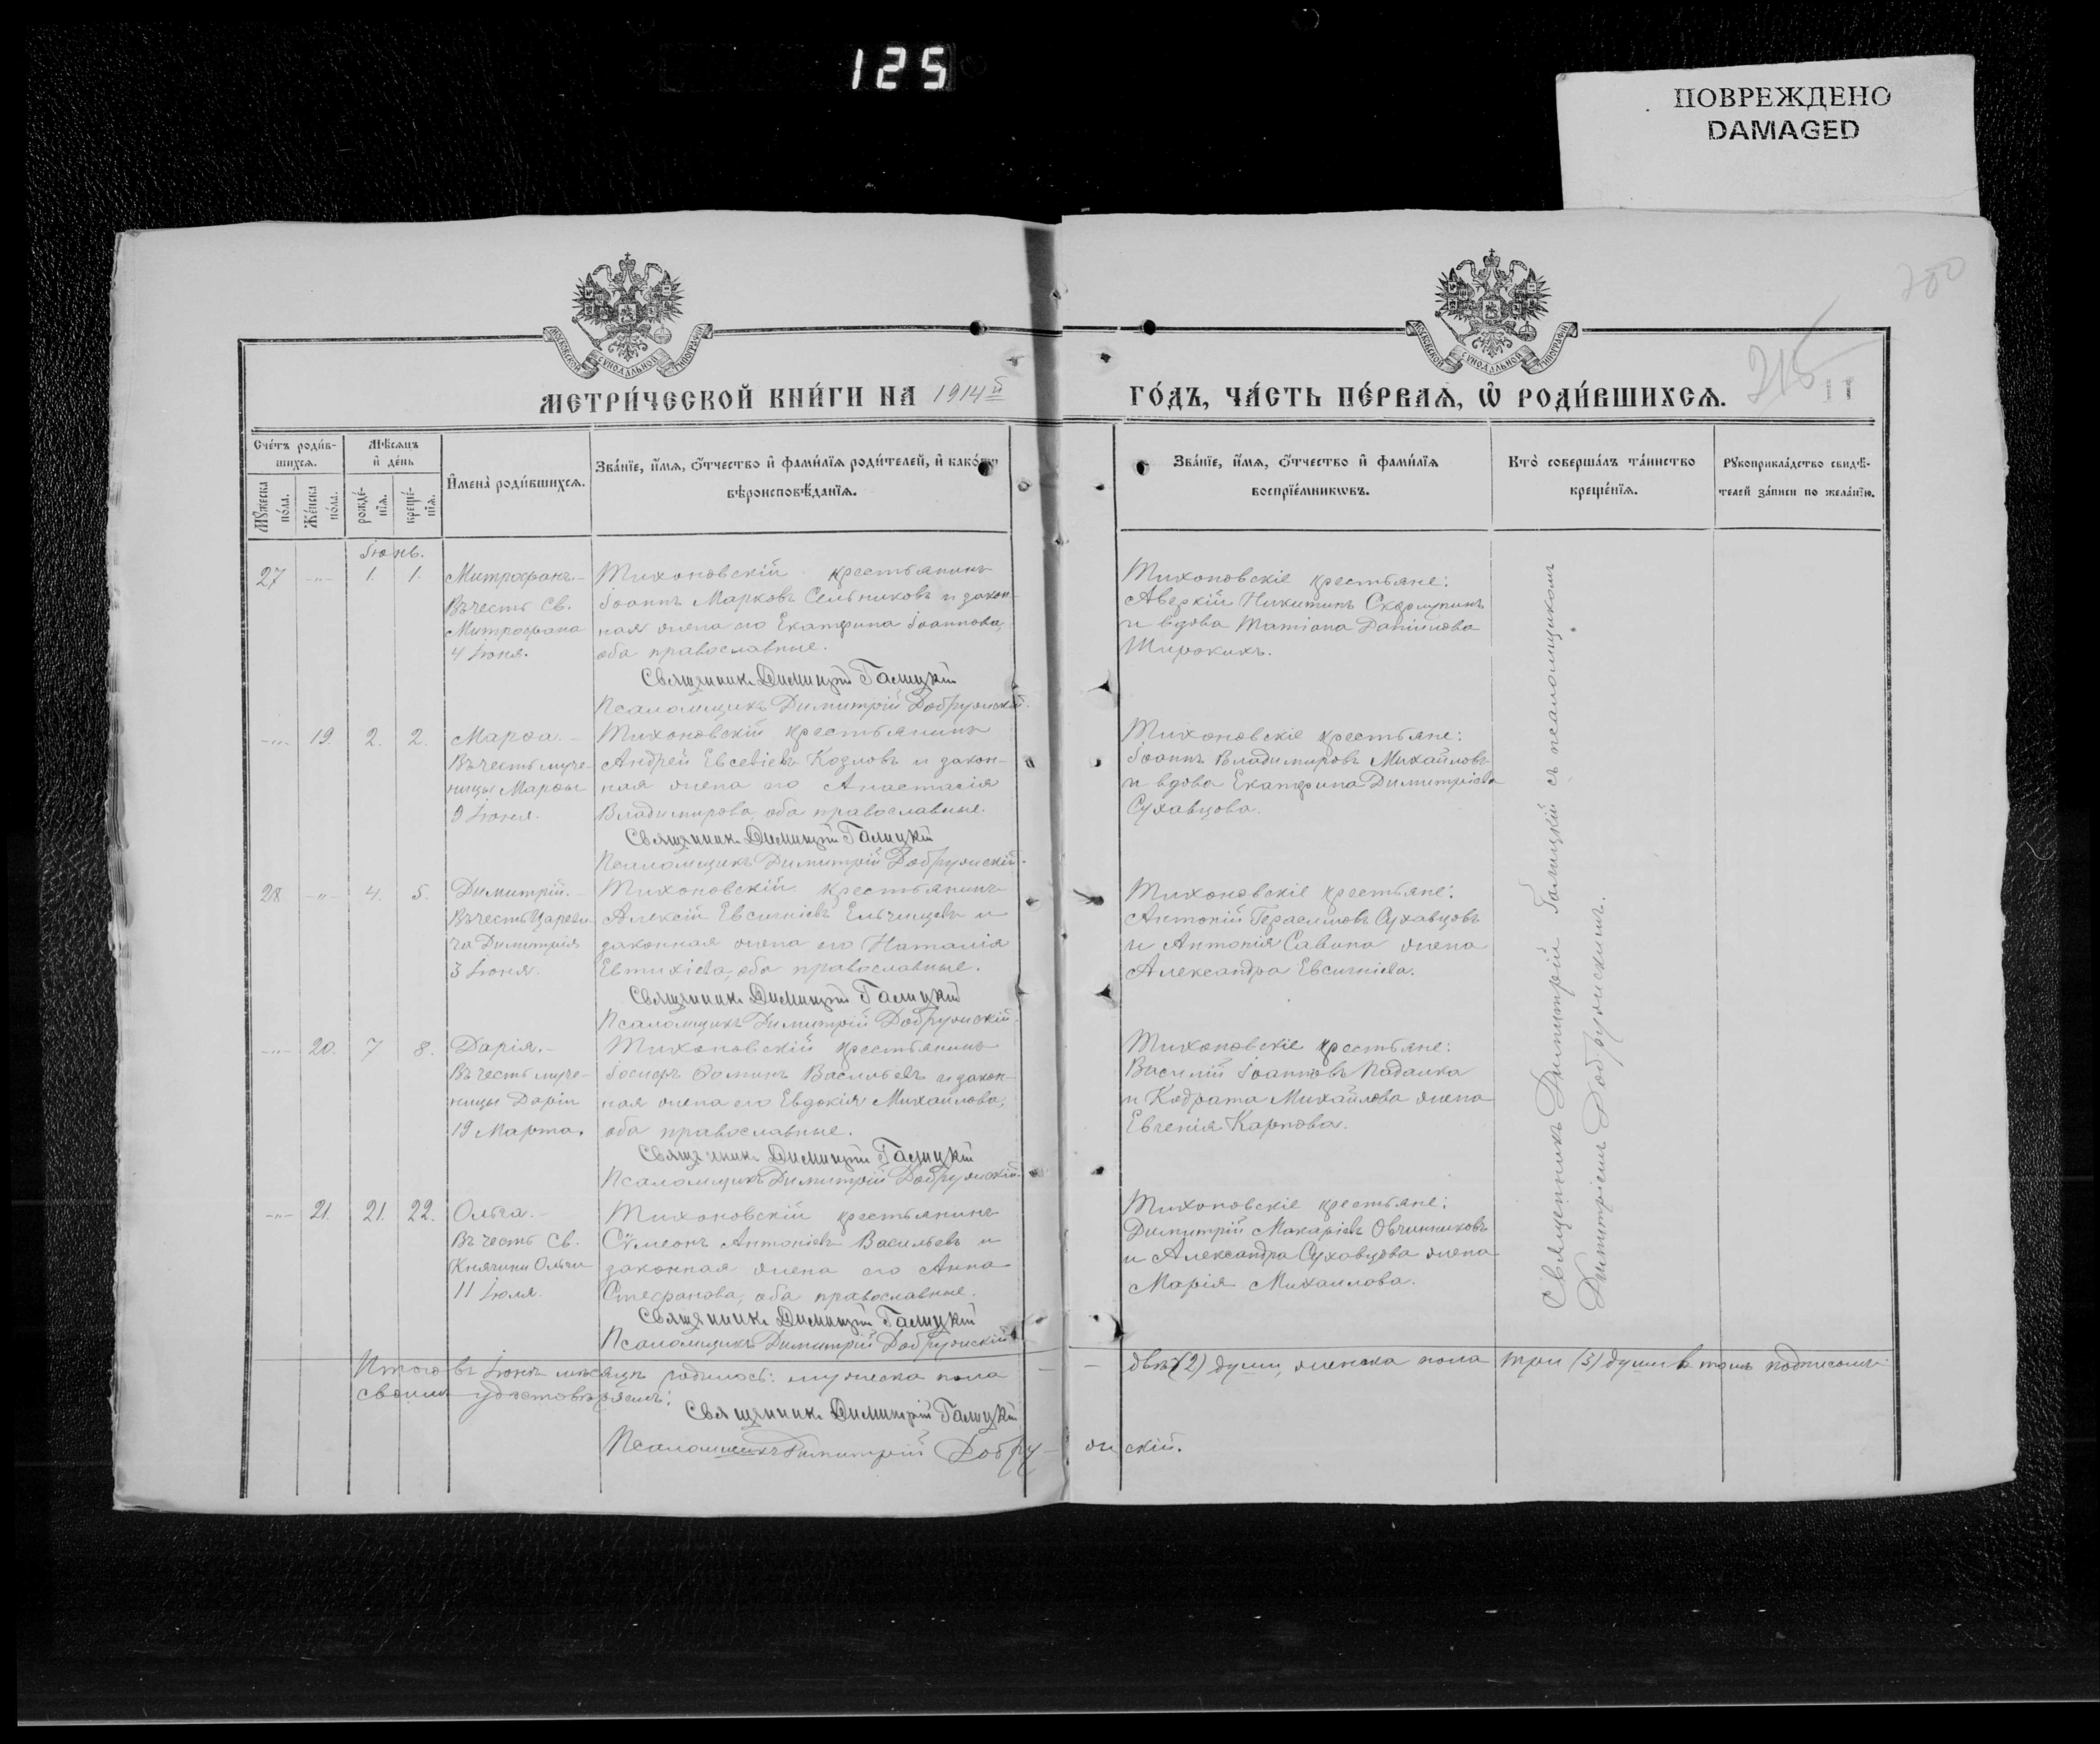 125
ПОВРЕЖДЕНО
DAMAGED
200
МОСКОВСКОЙ СѴНОДАЛЬНОЙ ТИПОГРАФІИ
МОСКОВСКОЙ СѴНОДАЛЬНОЙ ТИПОГРАФІИ
МЕТРИ́ЧЕСКОЙ КНИ́ГИ НА 1914й ГО́ДЪ, ЧА́СТЬ ПЕ́РВАѦ, Ѡ҆ РОДИ́ВШИХСѦ.
215
11
Сче́тъ роди́в-
шихсѧ.
Мѣ́сѧцъ
и҆ де́нь
Мꙋ́жеска
по́ла.
Же́нска
по́ла.
рожде́-
нїѧ.
креще́-
нїѧ.
И҆мена̀ роди́вшихсѧ.
Зва́нїе, и҆́мѧ, ѻ҆́тчество и҆ фами́лїѧ роди́телей, и҆ како́гѡ
вѣроисповѣ́данїѧ.
Зва́нїе, и҆́мѧ, ѻ҆́тчество и҆ фами́лїѧ
воспрїе́мникѡвъ.
Кто̀ соверша́лъ та́инство
креще́нїѧ.
Рꙋкоприкла́дство свидѣ́-
телей за́писи по жела́нїю.
Іюнь.
27 -„- 1. 1. Митрофанъ.-
Въ честь Св.
Митрофана
4 Іюня.
Тихоновскій крестьянинъ
Іоаннъ Марковъ Сельниковъ и закон-
ная жена его Екатерина Іоаннова,
оба православные.
Священникъ Димитрій Галицкій
Псаломщикъ Димитрій Добружскій.
Тихоновскіе крестьяне:
Аверкій Никитинъ Скорлупинъ
и вдова Татіана Даніилова
Широкихъ.
-„- 19. 2. 2. Марѳа.-
Въ честь муче-
ницы Марѳы
9 Іюня.
Тихоновскій крестьянинъ
Андрей Евсевіевъ Козловъ и закон-
ная жена его Анастасія
Владимирова, оба православные.
Священникъ Димитрій Галицкій
Псаломщикъ Димитрій Добружскій.
Тихоновскіе крестьяне:
Іоаннъ Владимировъ Михайловъ
и вдова Екатерина Димитріева
Сухавцова.
28 -„- 4. 5. Димитрій.-
Въ честь Цареви-
ча Димитрія
3 Іюня.
Тихоновскій крестьянинъ
Алексій Евсигніевъ Ельчищевъ и
законная жена его Наталія
Евтихіева, оба православные.
Священникъ Димитрій Галицкій
Псаломщикъ Димитрій Добружскій.
Тихоновскіе крестьяне:
Антоній Герасимовъ Сухавцовъ
и Антонія Савина жена
Александра Евсигніева.
-„- 20. 7 8. Дарія.-
Въ честь муче-
ницы Даріи
19 Марта.
Тихоновскій крестьянинъ
Іосифъ Ѳоминъ Васильевъ и закон-
ная жена его Евдокія Михайлова,
оба православные.
Священникъ Димитрій Галицкій
Псаломщикъ Димитрій Добружскій.
Тихоновскіе крестьяне:
Василій Іоанновъ Падалка
и Кодрата Михайлова жена
Евгенія Карпова.
-„- 21. 21. 22. Ольга.-
Въ честь Св.
Княгини Ольги
11 Іюля.
Тихоновскій крестьянинъ
Сѵмеонъ Антоніевъ Васильевъ и
законная жена его Анна
Стефанова, оба православные.
Священникъ Димитрій Галицкій
Псаломщикъ Димитрій Добружскій
Тихоновскіе крестьяне:
Димитрій Макаріевъ Овчинниковъ
и Александра Сухавцова жена
Марія Михаилова.
Священникъ Димитрій Галицкій съ псаломщикомъ
Димитріемъ Добружскимъ.
Итого въ Іюнѣ мѣсяцѣ родилось: мужеска пола - - двѣ (2) души, женска пола три (3) души в томъ подписомъ
своимъ удостовѣряемъ:
Священникъ Димитрій Галицкій
Псаломщикъ Димитрій Добру-жскій.